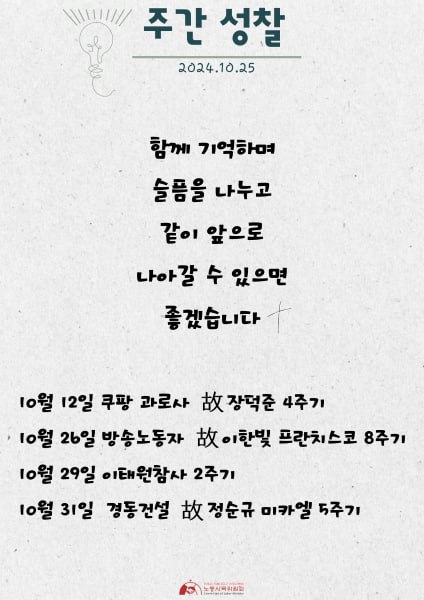 주간 성찰
2024.10.25
함께 기억하며
슬픔을 나누고
같이 앞으로
나아갈 수 있으면
좋겠습니다
10월 12일 쿠팡 과로사 故장덕준 4주기
10월 26일 방송노동자 故이한빛 프란치스코 8주기
10월 29일 이태원참사 2주기
10월 31일 경동건설 故정순규 미카엘 5주기
노동사목위원회